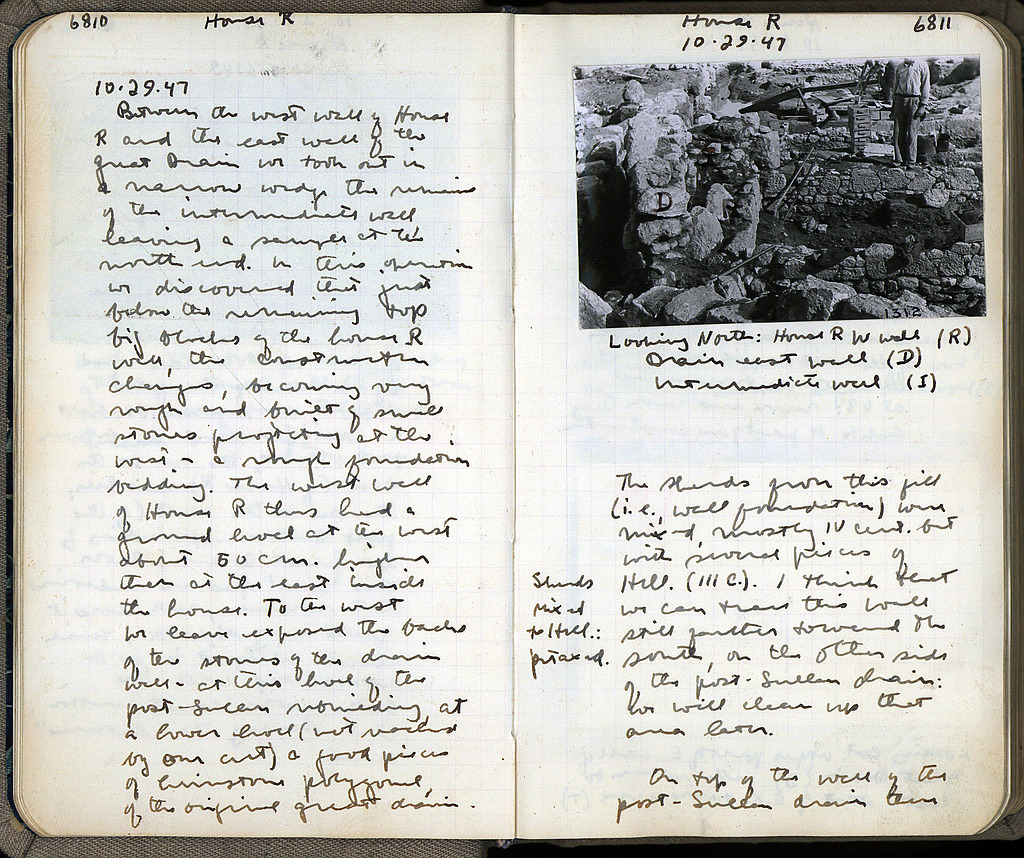 6810 House R
10.29.47
Between the west wall of House
R and the east wall of the
great Drain we took out in
a narrow wedge the remains
of the intermediate wall
leaving a sample at the
north end. In this operation
we discovered that just
below the remaining top
big blocks of the house R
wall, the construction
changes, becoming very
rough and built of small
stones projecting at the
west - a rough foundation
bedding. The west wall
of House R thus had a
ground level at the west
about 50 cm. higher
than at the east inside
the house. To the west
we leave exposed the backs
of the stones of the drain
wall - at this level of the
post-Sullan rebuilding, at
a lower level (not reached
by our cut) a good piece
of limestone polygonal,
of the original great drain.
House R 6811
10.29.47
D
1312
Looking North: House R W wall (R)
Drain east wall (D)
Intermediate wall (I)
The sherds from this fill
(i.e., wall foundation) were
mixed, mostly IV cent. but
with several pieces of
Hell. (III C.). I think that
we can trace this wall
still further toward the
south, on the other side
of the post-Sullan drain:
we will clean up that
area later.
Sherds
mixed
to Hell.:
On top of the wall of the
post-Sullan drain